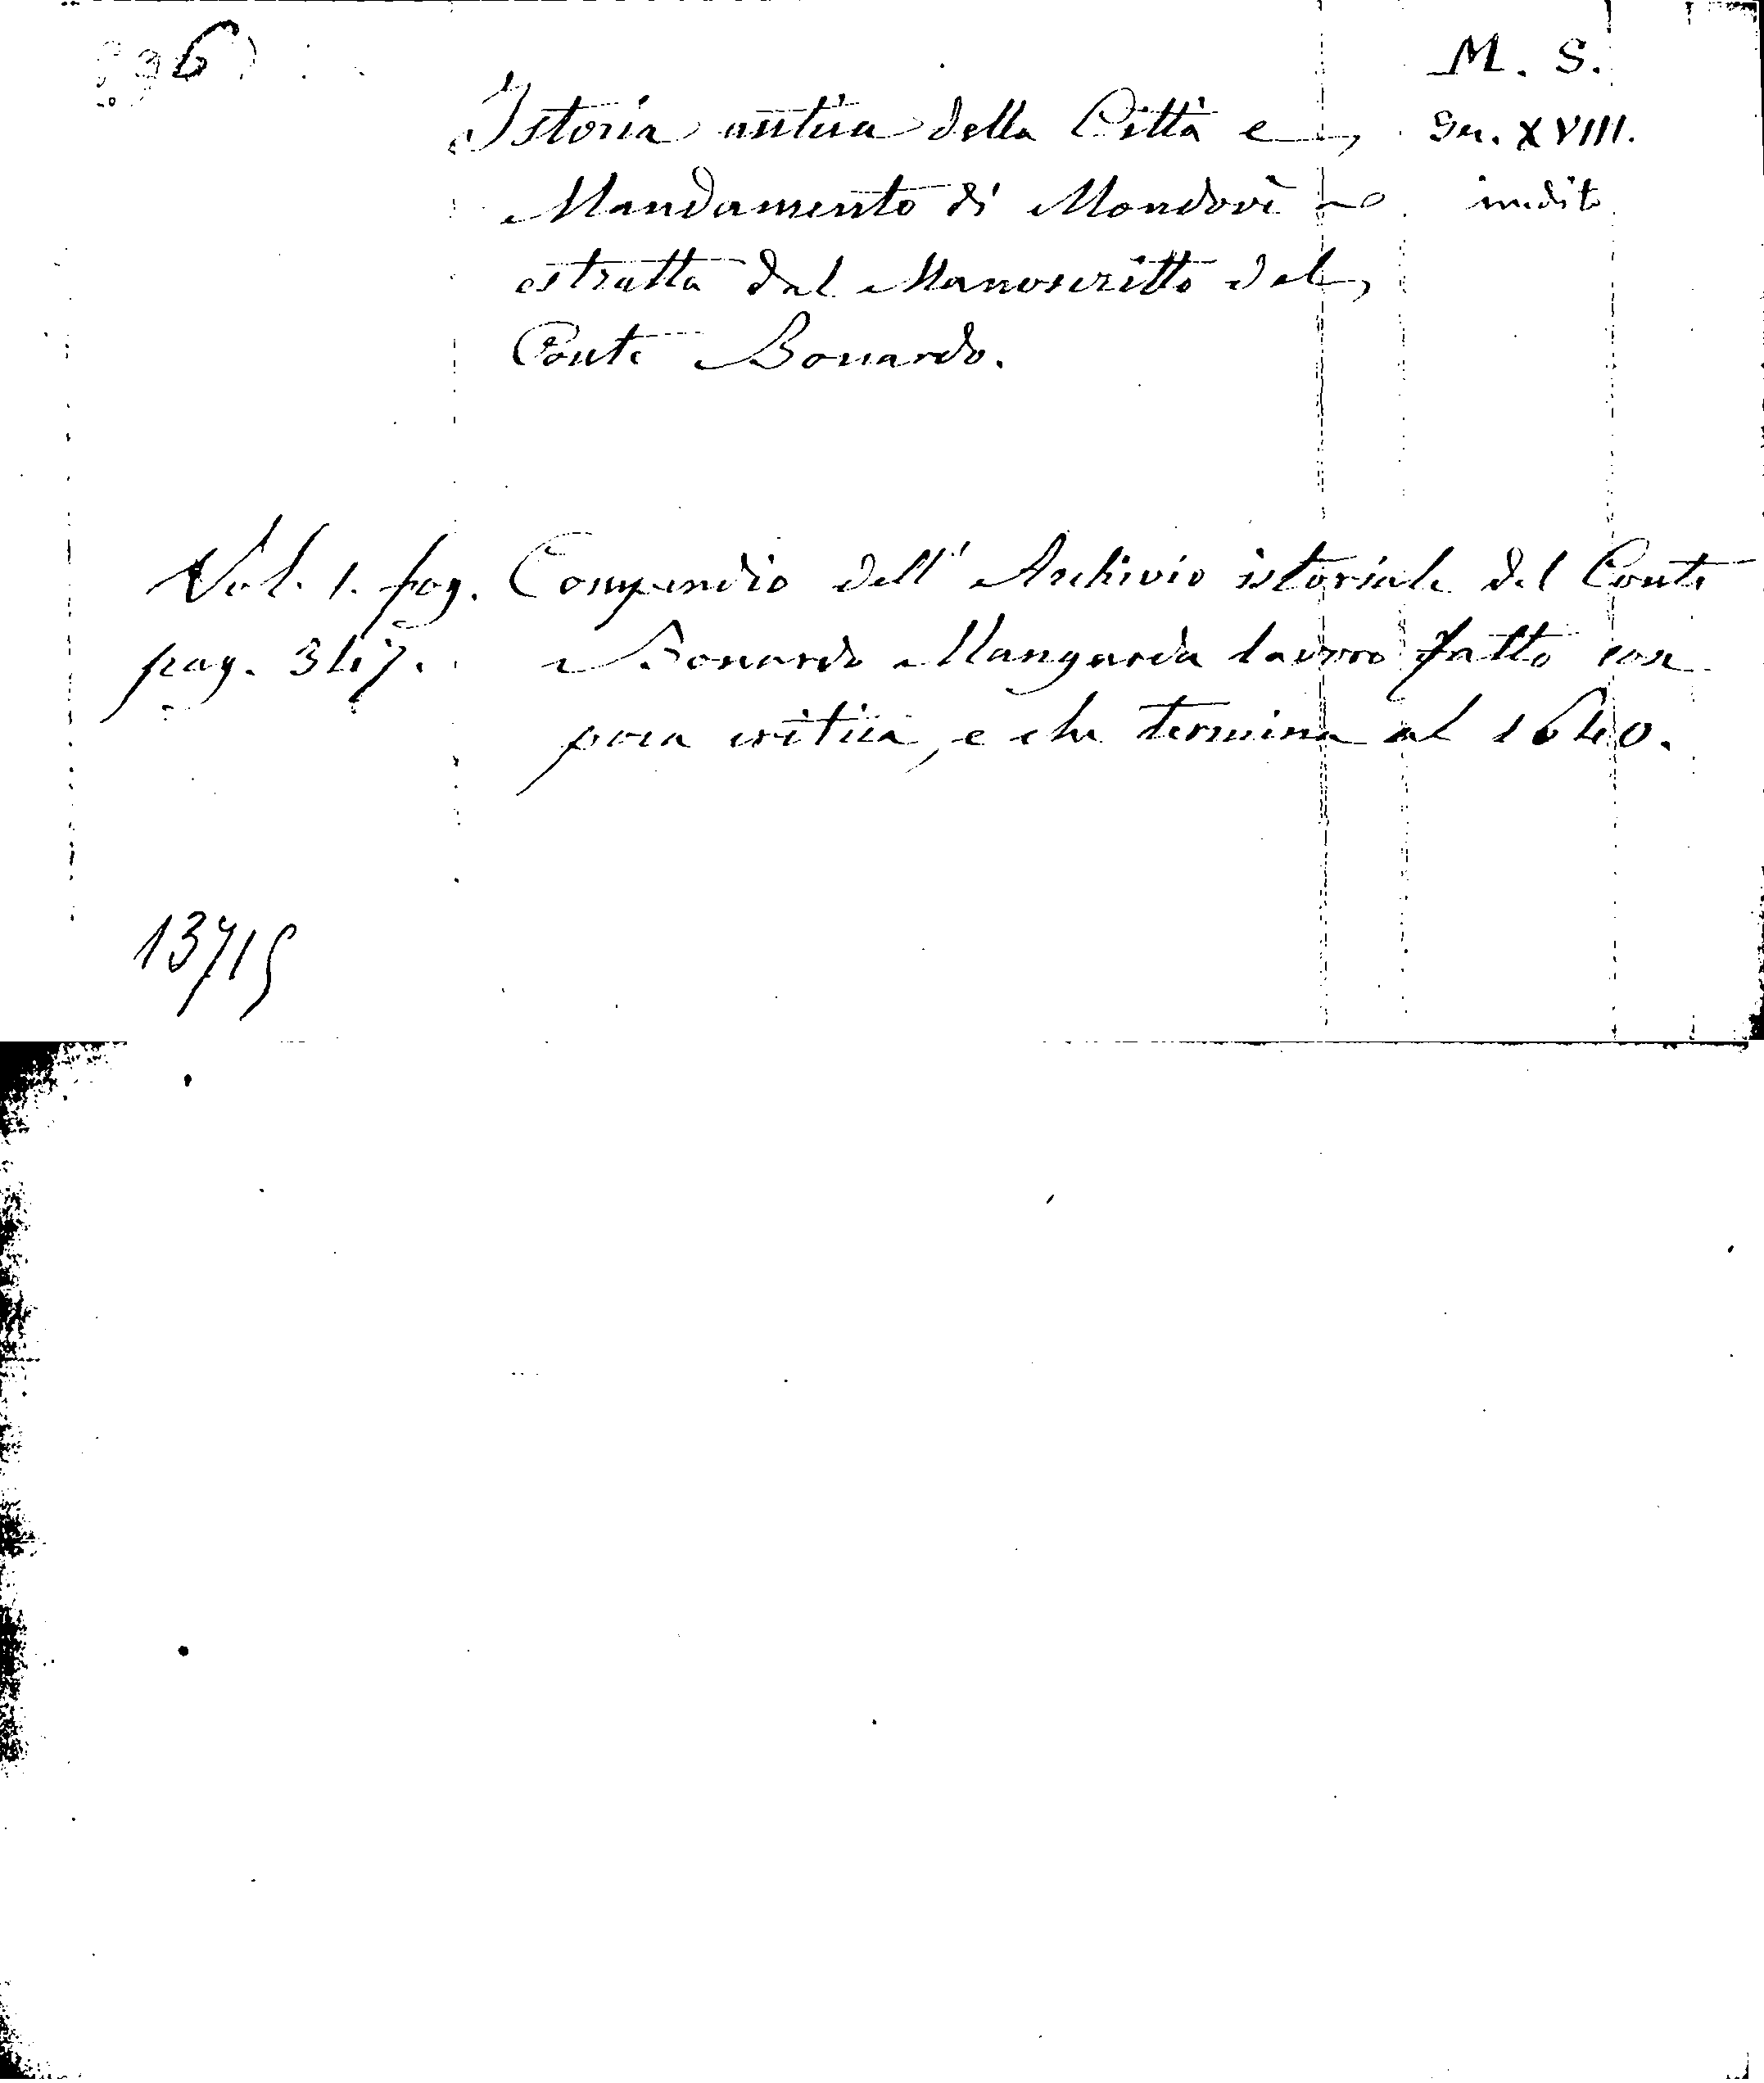 M. S.
Istoria antica della Città e Sec. XVIII.
Mandamento di Mondovì inedito
estratta dal Manoscritto del
Conte Bonardo.
Vol. 1. fog. Compendio dell' Archivio istoriale del Conte
pag. 347. Bonardo Mangarda lavoro fatto con
poca critica, e che termina al 1640.
13715